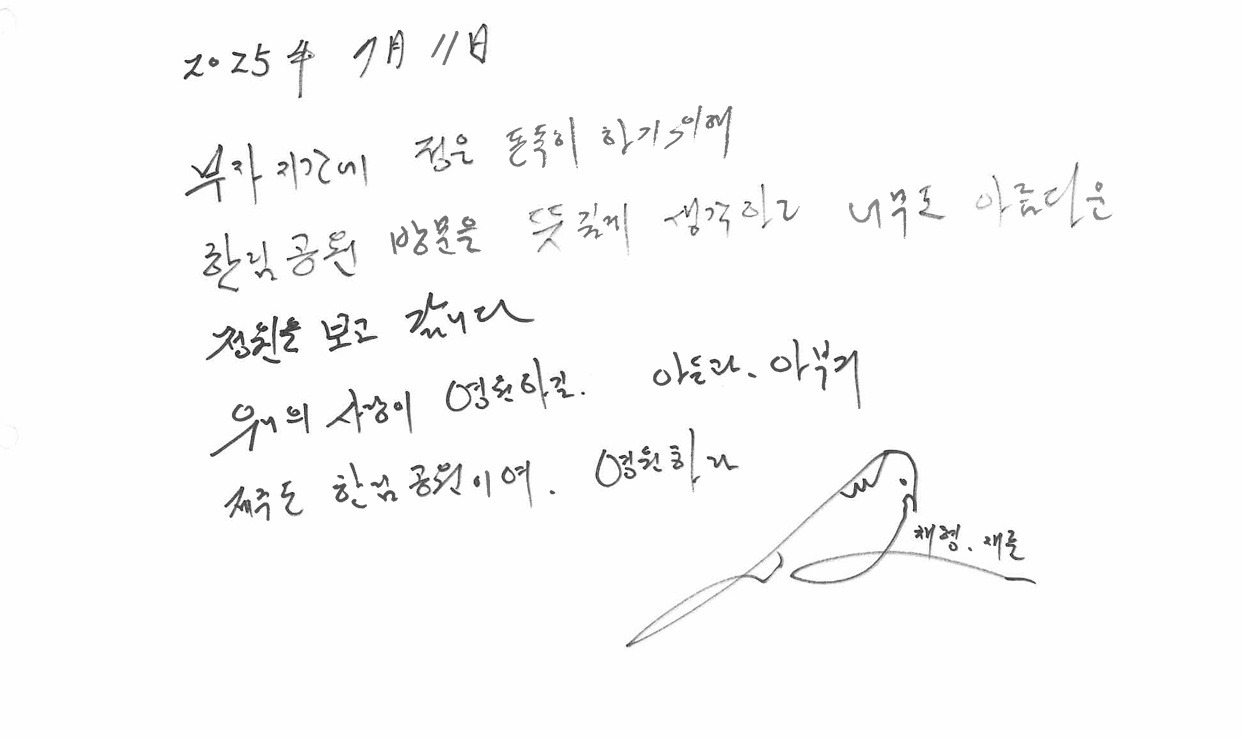 2025年 7月 11日
부자지간에 정을 돈독히 하기 위해
한림공원 방문을 뜻깊게 생각하고 너무도 아름다운
정원을 보고 갑니다
우리의 사랑이 영원하길. 아들과. 아부지
제주도 한림공원이여. 영원하라
채형. 재를